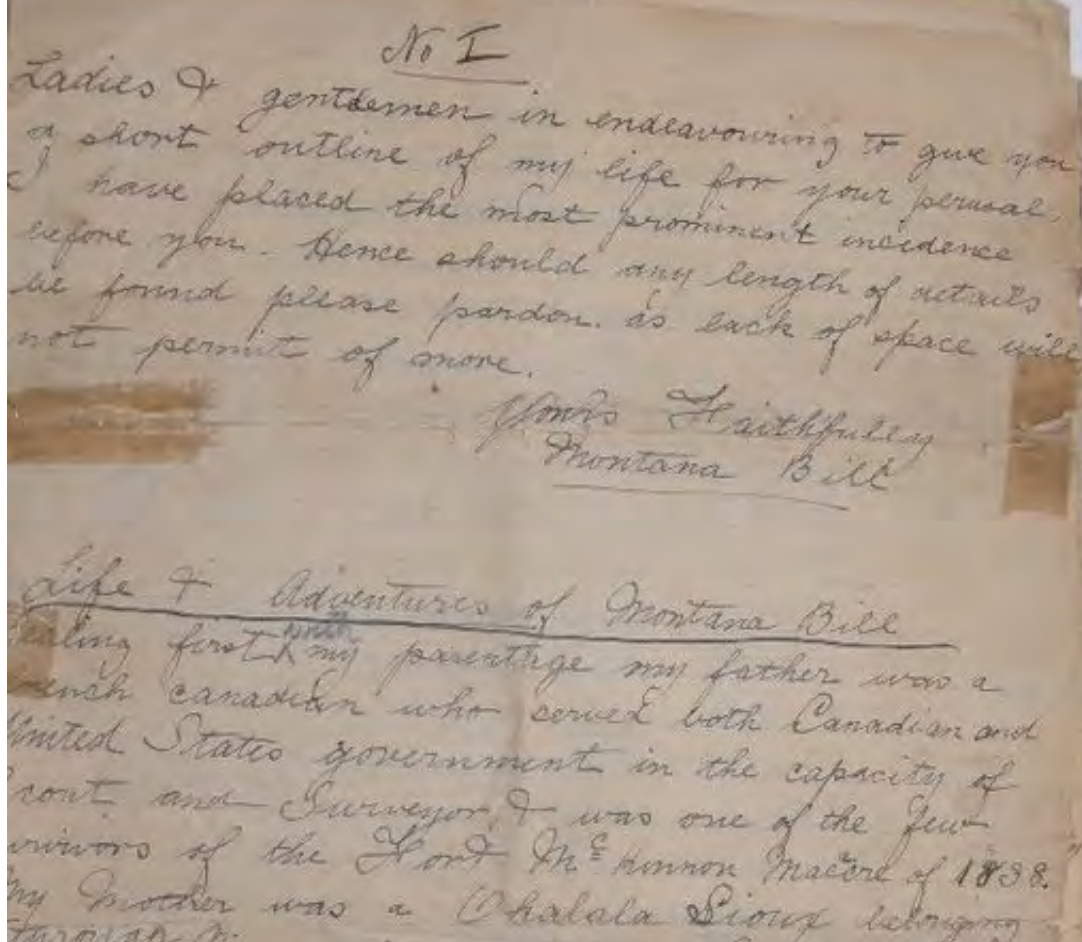 No I
Ladies & gentlemen in endeavouring to give you
a short outline of my life for your perusal.
I have placed the most prominent incidence
before you. Hence should any length of details
be found please pardon. as lack of space will
not permit of more.
Yours Faithfully
Montana Bill
Life & Adventures of Montana Bill
first with my parentage my father was a
canadian who served both Canadian and
United States government in the capacity of
Scout and Surveyor, & was one of the few
survivors of the Ford Mc Kinnon Macere of 1838.
My Mother was a Ohalala Sioux belonging
through